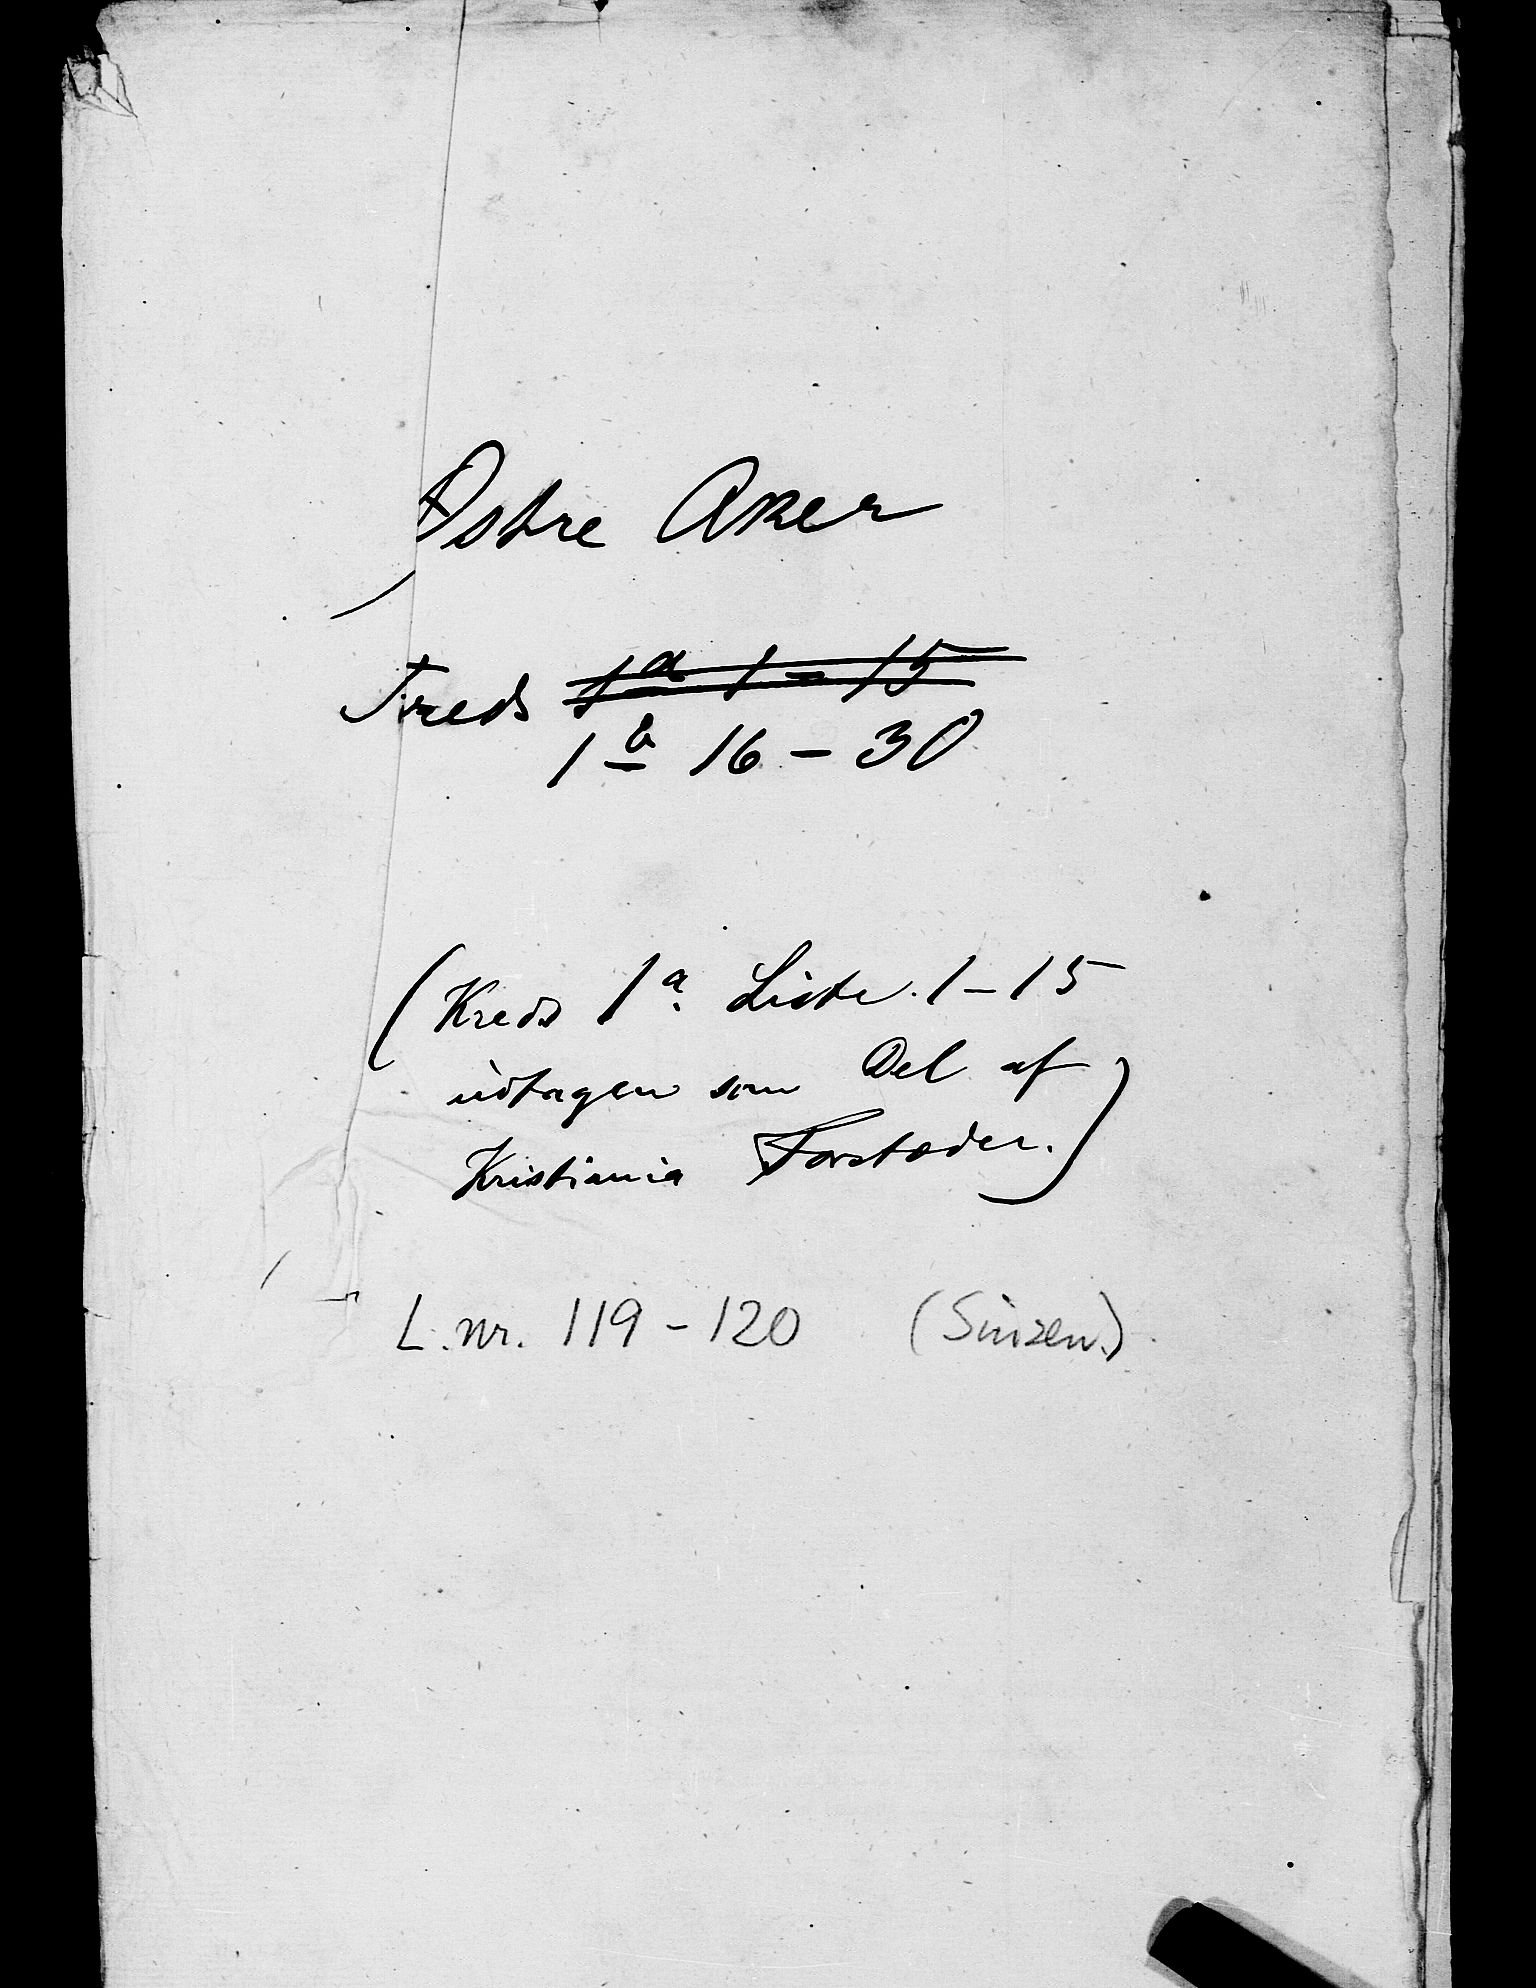 Østre Aker
Kreds 1a 1 - 15
1b 16 - 30
(Kreds 1a. Liste. 1 - 15
udtagen som Del af
Kristiania Forstæder.)
L. nr. 119 - 120 (Sinsen.)